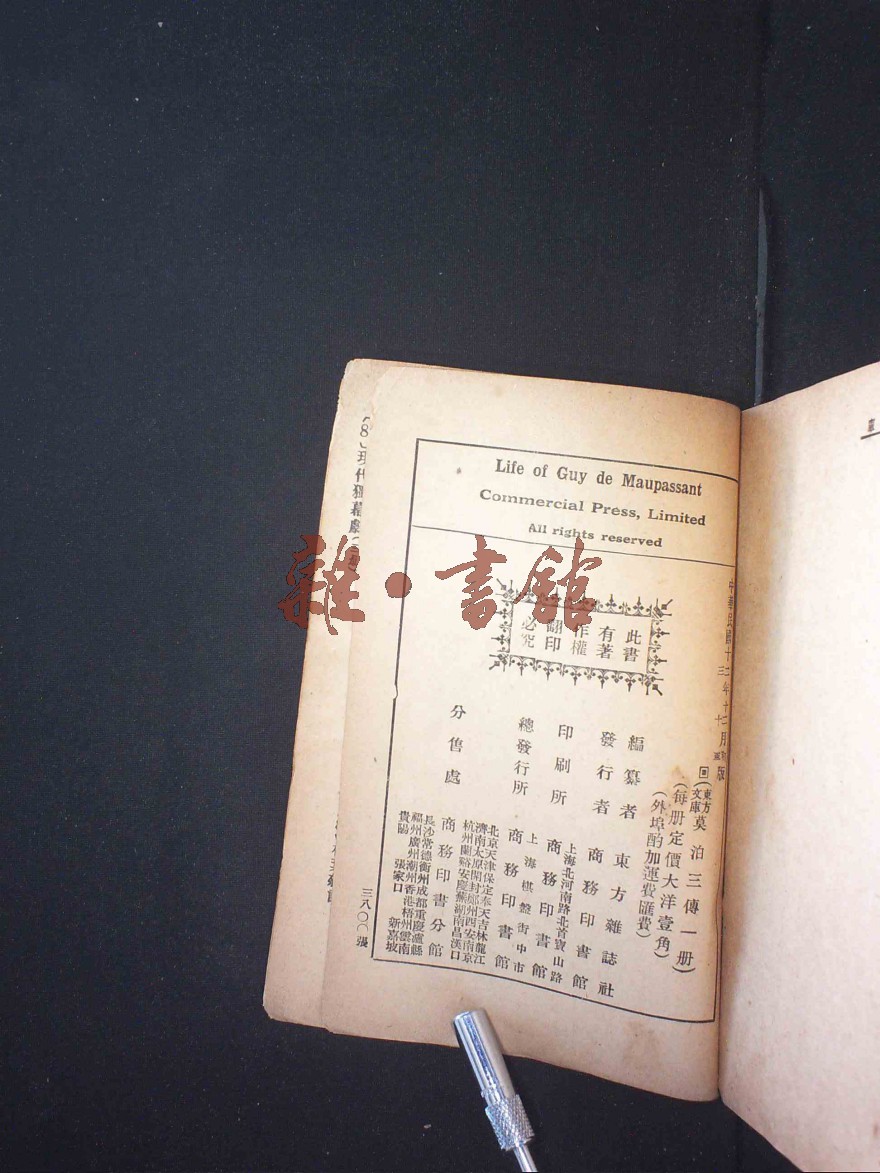 Life of Guy de Maupassant
Commercial Press, Limited
All rights reserved
此書
有著
作權
翻印
必究
(東方文庫)莫泊三傳一册
(每册定價大洋壹角)
(外埠酌加運費匯費)
編纂者 東方雜誌社
發行者 商務印書館
上海北河南路北首寶山路
印刷所 商務印書館
上海棋盤街中市
總發行所 商務印書館
北京天津保定奉天吉林龍江
濟南太原開封鄭州西安南京
杭州蘭谿安慶蕪湖南昌漢口
分售處 商務印書分館
長沙常德衡州成都重慶瀘縣
福州廣州潮州香港梧州雲南
貴陽 張家口 新嘉坡
三八〇〇張
現代獨幕劇
雜·書館